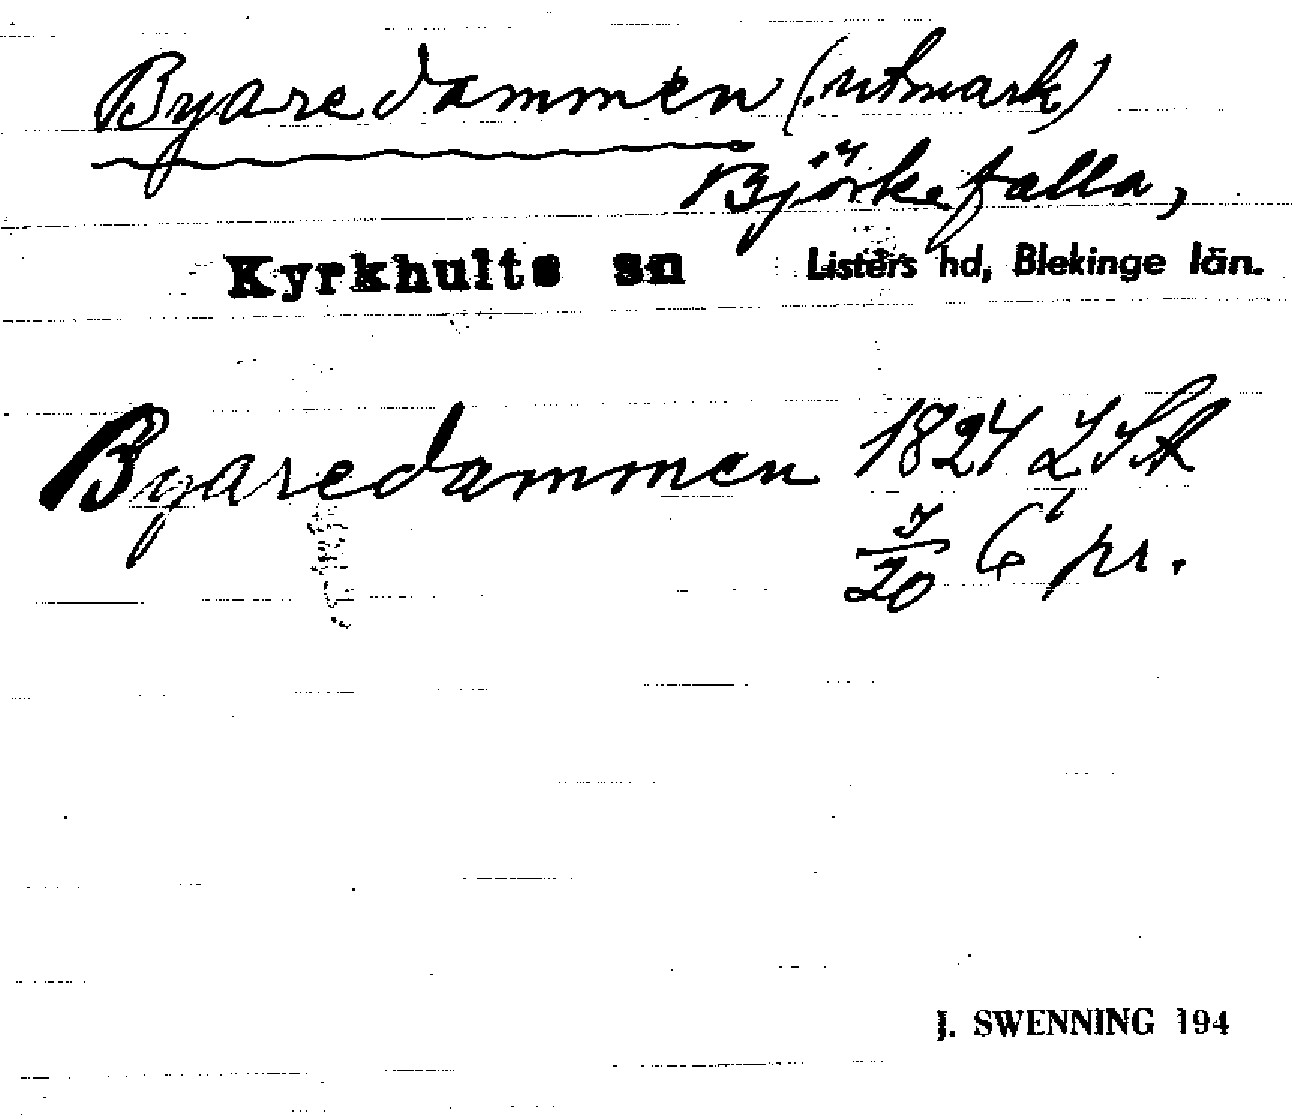 Byaredammen (utmark)
Björkefalla,
Kyrkhults sn Listers hd, Blekinge län.
Byaredammen 1824 LSA
6 pr.
J. SWENNING 194